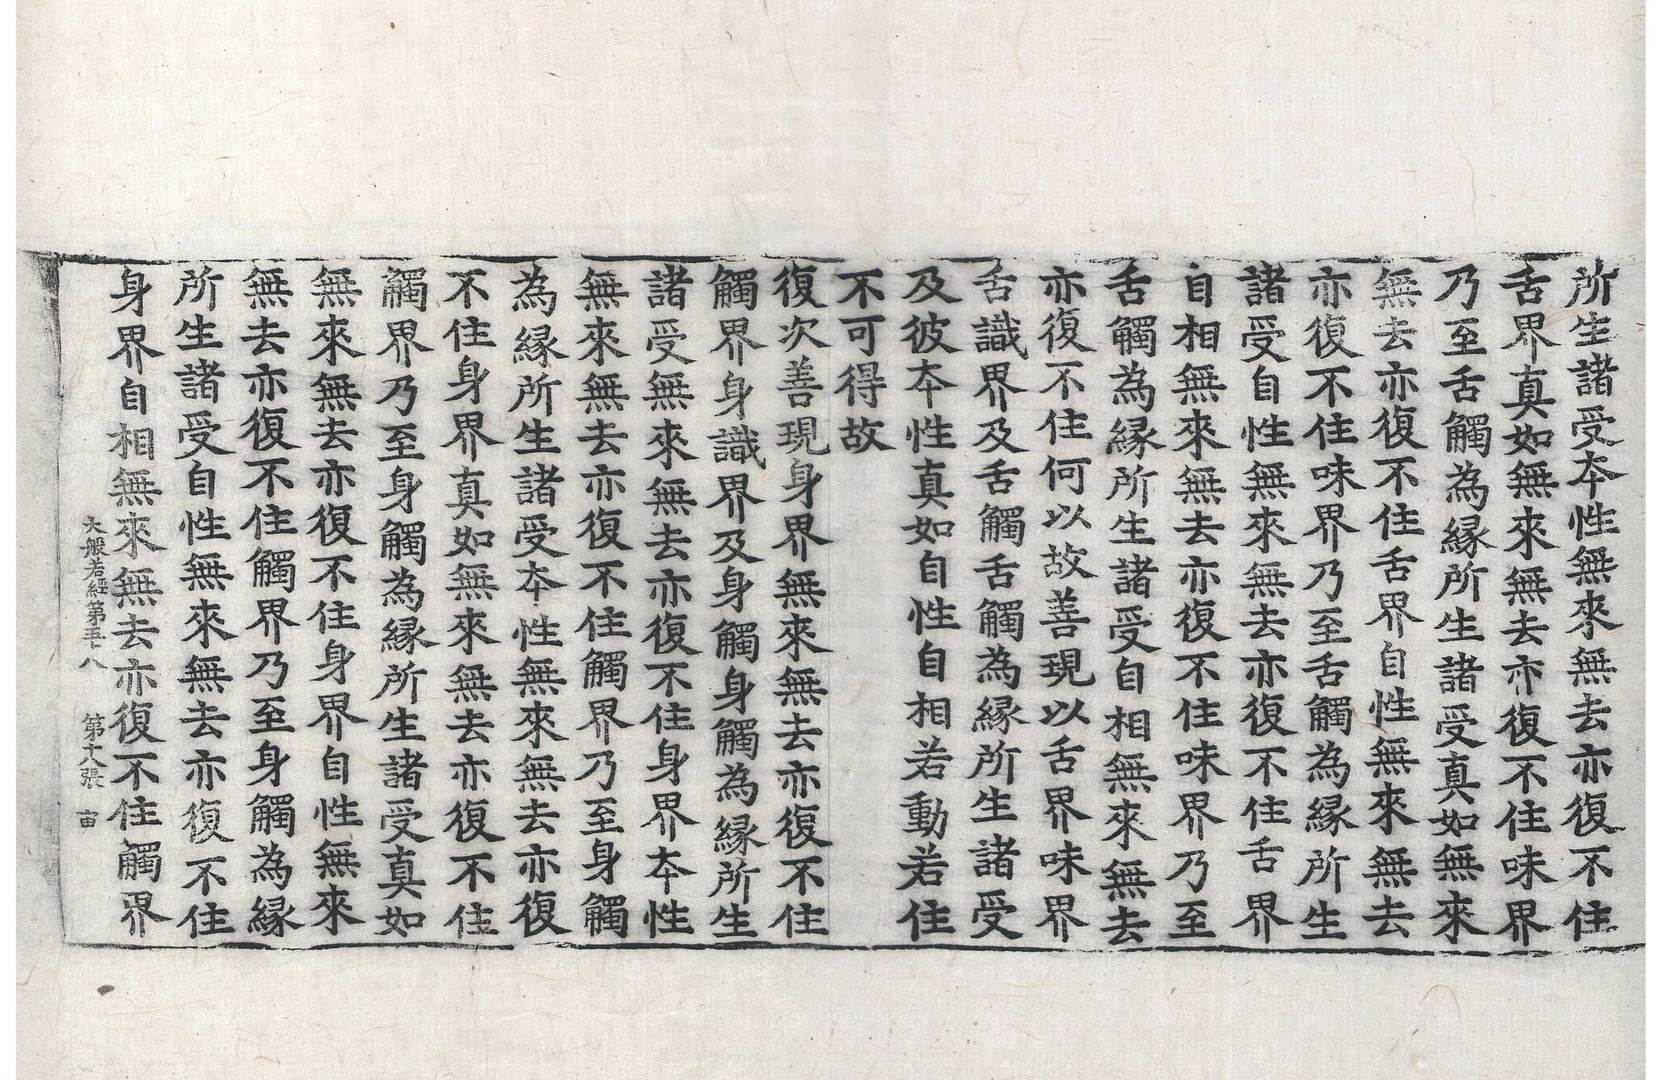 所生諸受夲性無來無去亦復不住
舌界真如無來無去亦復不住味界
乃至舌觸為縁所生諸受真如無來
無去亦復不住舌界自性無來無去
亦復不住味界乃至舌觸為縁所生
諸受自性無來無去亦復不住舌界
自相無來無去亦復不住味界乃至
舌觸為縁所生諸受自相無來無去
亦復不住何以故善現以舌界味界
舌識界及舌觸舌觸為縁所生諸受
及彼夲性真如自性自相若動若住
不可得故
復次善現身界無來無去亦復不住
觸界身識界及身觸身觸為縁所生
諸受無來無去亦復不住身界夲性
無來無去亦復不住觸界乃至身觸
為縁所生諸受夲性無來無去亦復
不住身界真如無來無去亦復不住
觸界乃至身觸為縁所生諸受真如
無來無去亦復不住身界自性無來
無去亦復不住觸界乃至身觸為縁
所生諸受自性無來無去亦復不住
身界自相無來無去亦復不住觸界
大般若經第五十八 第十八張 宙